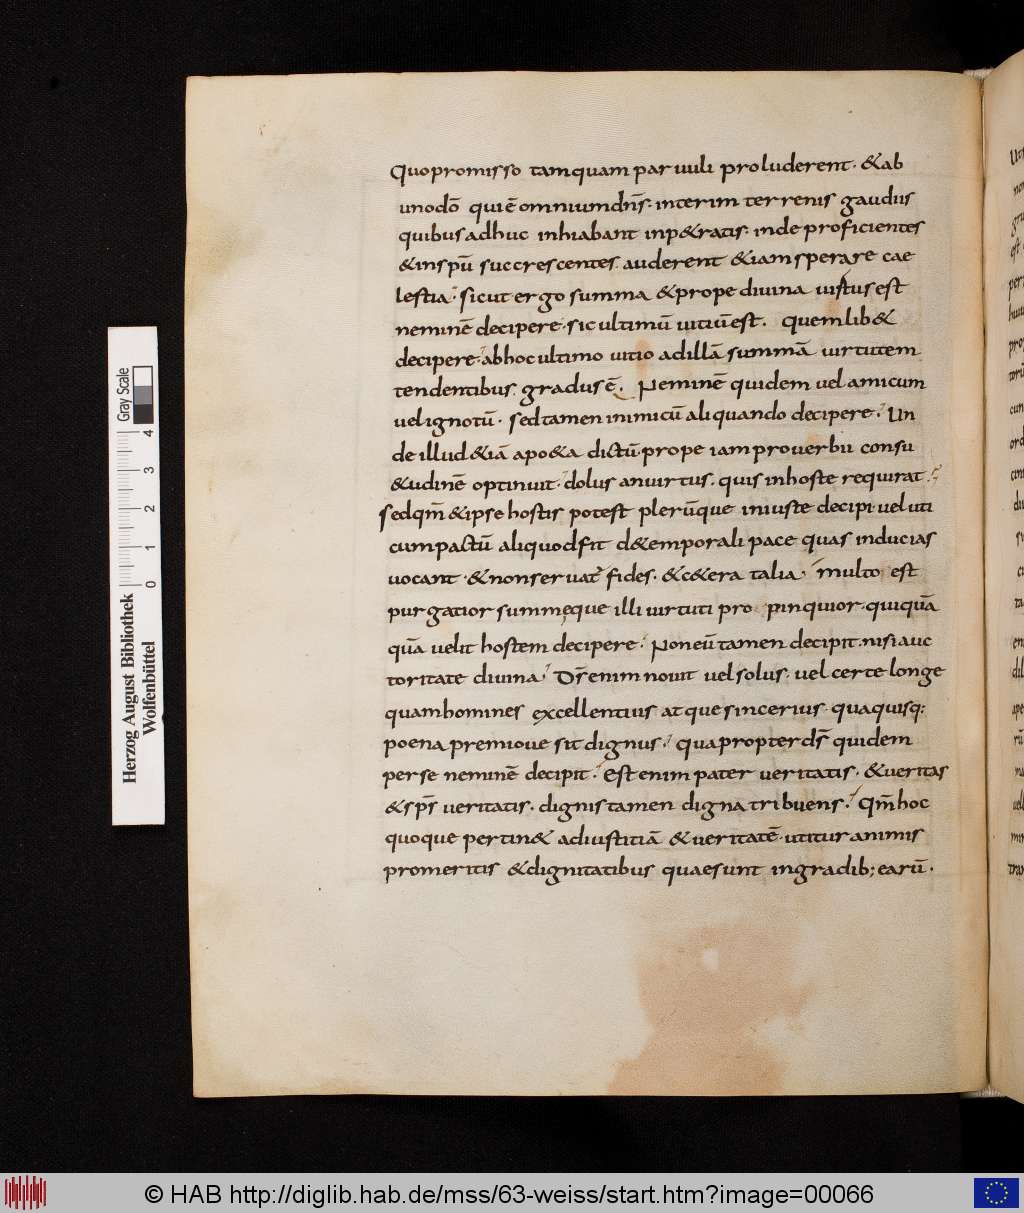 Quo promisso tamquam parvuli proluderent. & ab
uno dō qui ē omnium dn̄s. interim terrenis gaudiis
quibus adhuc inhiabant inp&ratis. inde proficientes
& in spū succrescentes. auderent & iam sperare cae
lestia. sicut ergo summa & prope divina virtus est
neminē decipere. sic ultimū vitiū est. Quemlib&
decipere. ab hoc ultimo vitio ad illā summā virtutem
tendentibus. gradus ē. Neminē quidem vel amicum
vel ignotū. sed tamen inimicū aliquando decipere. Un
de illud &iā apo&a dictū. prope iam proverbii consu
&udinē optinuit. dolus an virtus. quis in hoste requirat.
sed qm̄ & ipse hostis potest plerūque iniuste decipi. veluti
cum pactū aliquod fit d& emporali pace quas inducias
vocant. & non servat̄ fides. & c&era talia. multo est
purgatior summęque illi virtuti propinquior. qui quā
quā velit hostem decipere. Non eū tamen decipit. nisi auc
toritate divina. Ds̄ enim novit vel solus. vel certe longe
quam homines excellentius atque sincerius. qua quisq:
poena premiove sit dignus. quapropter ds̄ quidem
per se neminē decipit. est enim pater veritatis. & veritas
& sps̄ veritatis. dignis tamen digna tribuens. Qm̄ hoc
quoque pertin& ad iustitiā & veritatē. utitur animis
pro meritis & dignitatibus quae sunt in gradib; earū.
Herzog August Bibliothek
Wolfenbüttel
0 1 2 3 4
Gray Scale
© HAB http://diglib.hab.de/mss/63-weiss/start.htm?image=00066